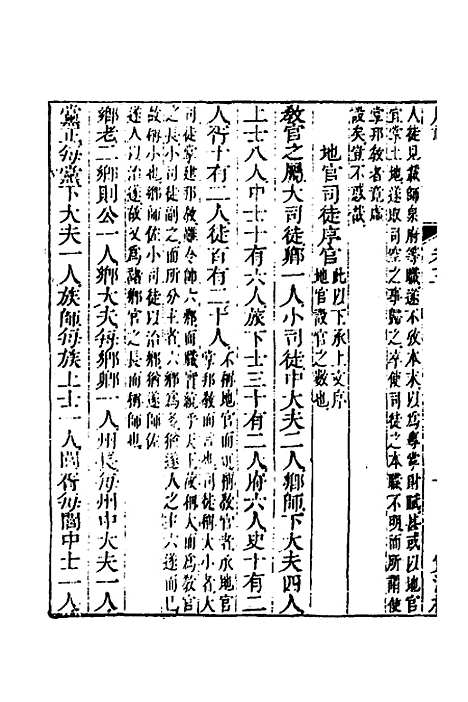 人徒見載師泉府等職遂不攷本末以爲專掌財賦甚或以地官
宜掌土地遂取司空之事歸之淳使司徒之本職不明而周使
掌邦敎者竟虛
設矣豈不惑哉
地官司徒序官
此以下承上文序
地官設官之數也
敎官之屬大司徒卿一人小司徒中大夫二人鄉師下大夫四人
上士八人中士十有六人旅下士三十有二人府六人史十有二
人胥十有二人徒百有二十人
不稱地官而稱敎官者承地官
掌邦敎而言也司徒稱大小者大
司徒掌建邦敎雖令師六鄉而職實統乎天王故稱大而爲敎官
之長小司徒副之而所分主者六鄉爲多
遂人之主六遂而已
故稱小也鄉師佐小司徒以治鄉猶遂師佐
遂人以治遂故又爲諸鄉官之長而稱師也
鄉老二鄉則公一人鄉大夫每鄉卿一人州長每州中大夫一人
黨正每黨下大夫一人族師每族上士一人閭胥每閭中士一人